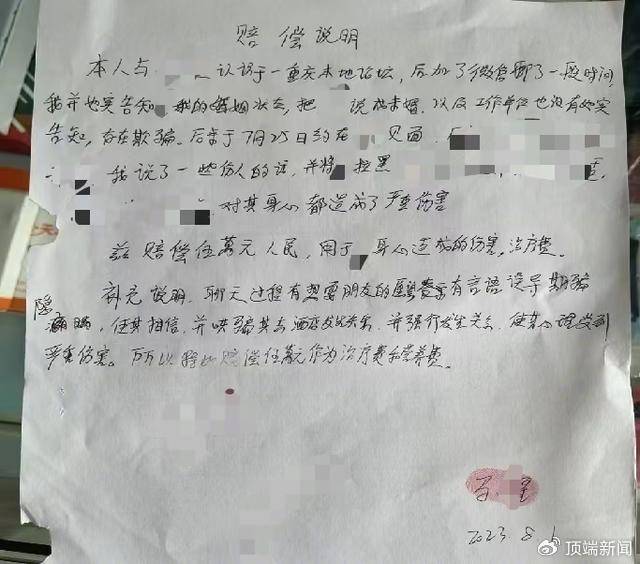 赔偿说明
本人与 认识于一重庆本地论坛，后加了微信聊了一段时间，
我并如实告知 我的婚姻状态，把 说成未婚，以及工作单位也没有如实
告知，存在欺骗。后来于7月25日约在 见面，
我说了一些伤人的话，并将 拉黑
对其身心都造成了严重伤害
兹赔偿伍萬元人民，用于 身心造成的伤害，治疗费。
补充说明，聊天过程有想要朋友的 有言语误导期骗
隐瞒 ，使其相信，并哄骗其去酒店发生关系，并强行发生关系，使其心理受到
严重伤害。所以 赔偿伍萬元作为治疗费和营养费。
2023.8.1
顶端新闻